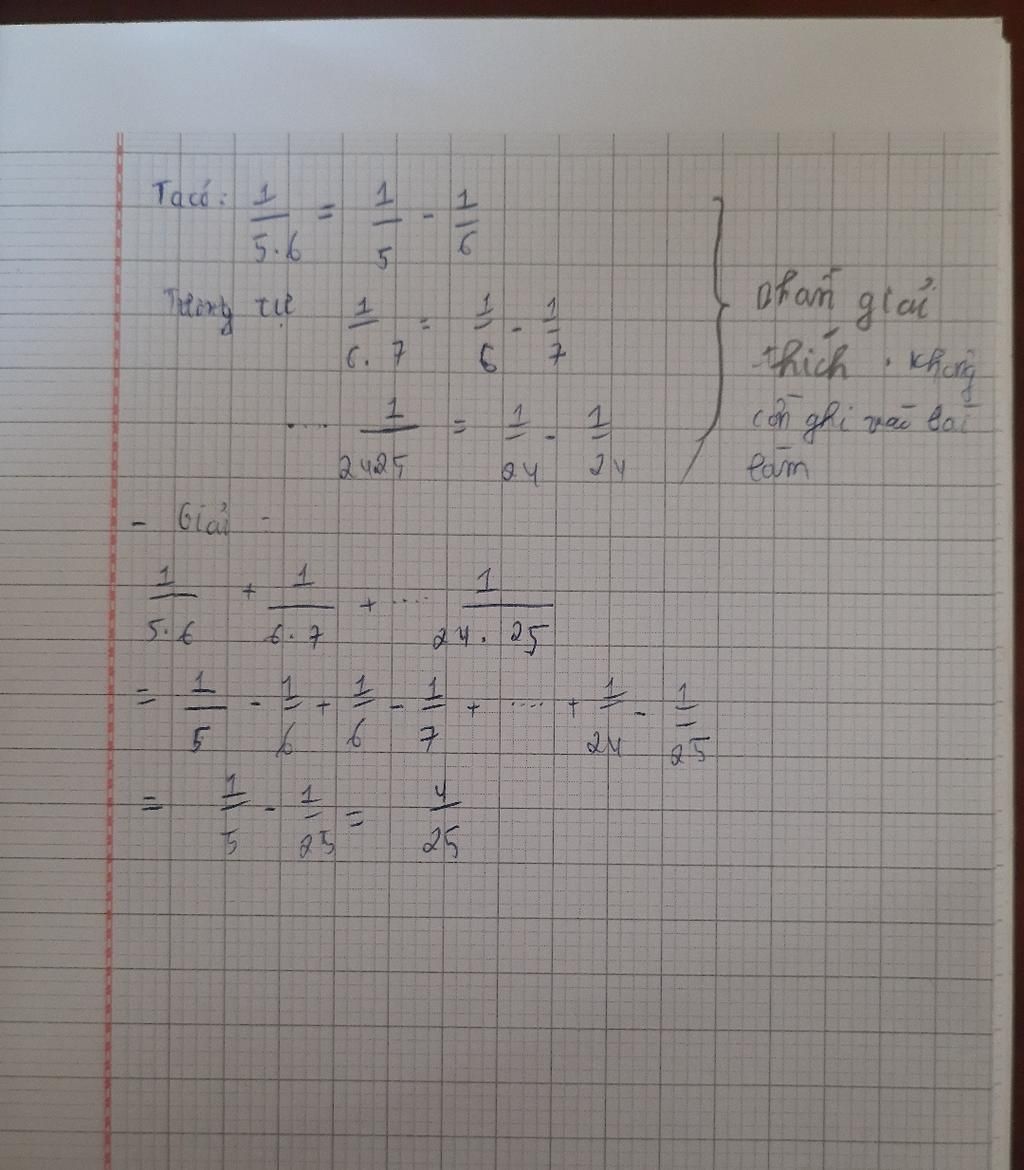 Ta có: 1/5.6 = 1/5 - 1/6
Tương tự 1/6.7 = 1/6 - 1/7
.... 1/2425 = 1/24 - 1/24
phần giải
thích . không
cần ghi vào bài
làm
- Giải -
1/5.6 + 1/6.7 + .... 1/24.25
= 1/5 - 1/6 + 1/6 - 1/7 + .... + 1/24 - 1/25
= 1/5 - 1/25 = 4/25